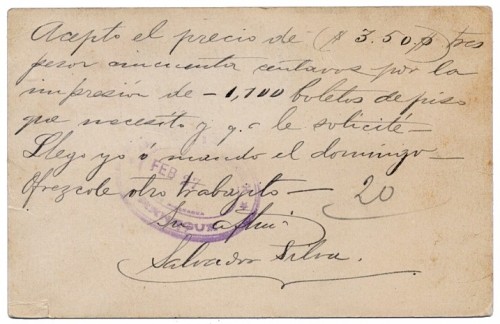 Acepto el precio de ($ 3.50.) tres
pesos cincuenta centavos por la
impresión de -1,100 boletos de piso
que necesito y q. le solicité-
Llego yo ó mando el domingo-
Ofrezcole otro trabajito-
20
FEB
Su afmo
Salvador Silva.